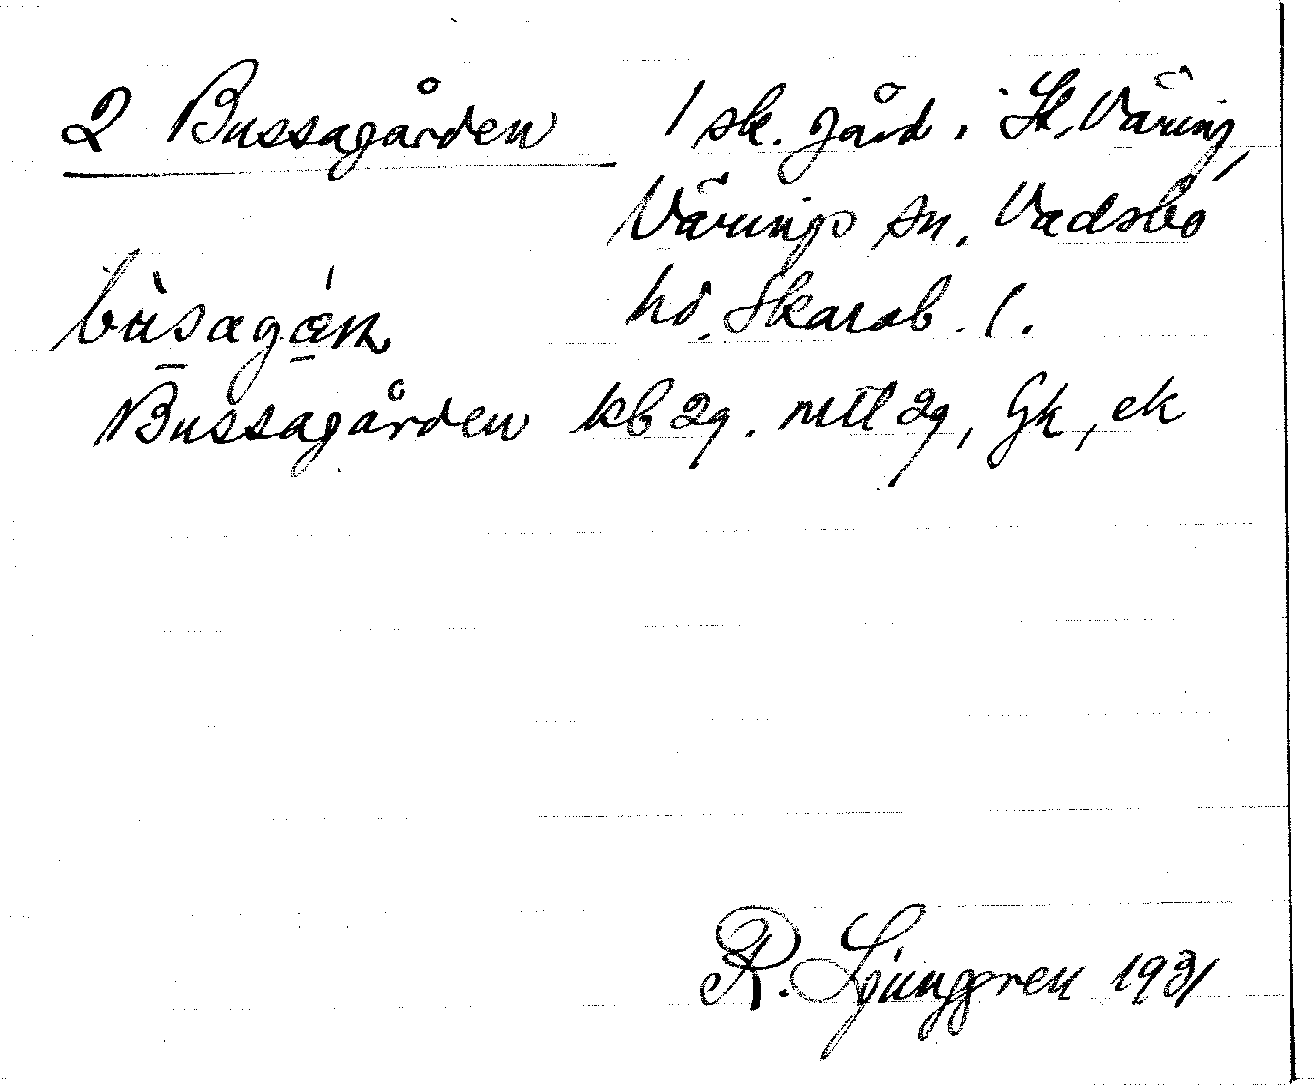 2 Bussagården 1 sk. gård i St. Väring,
Värings sn. Vadsbo
bùsagán hd. Skarab. l.
Bussagården kb 29. mtl 29, Gk, ek
R. Ljunggren 1931